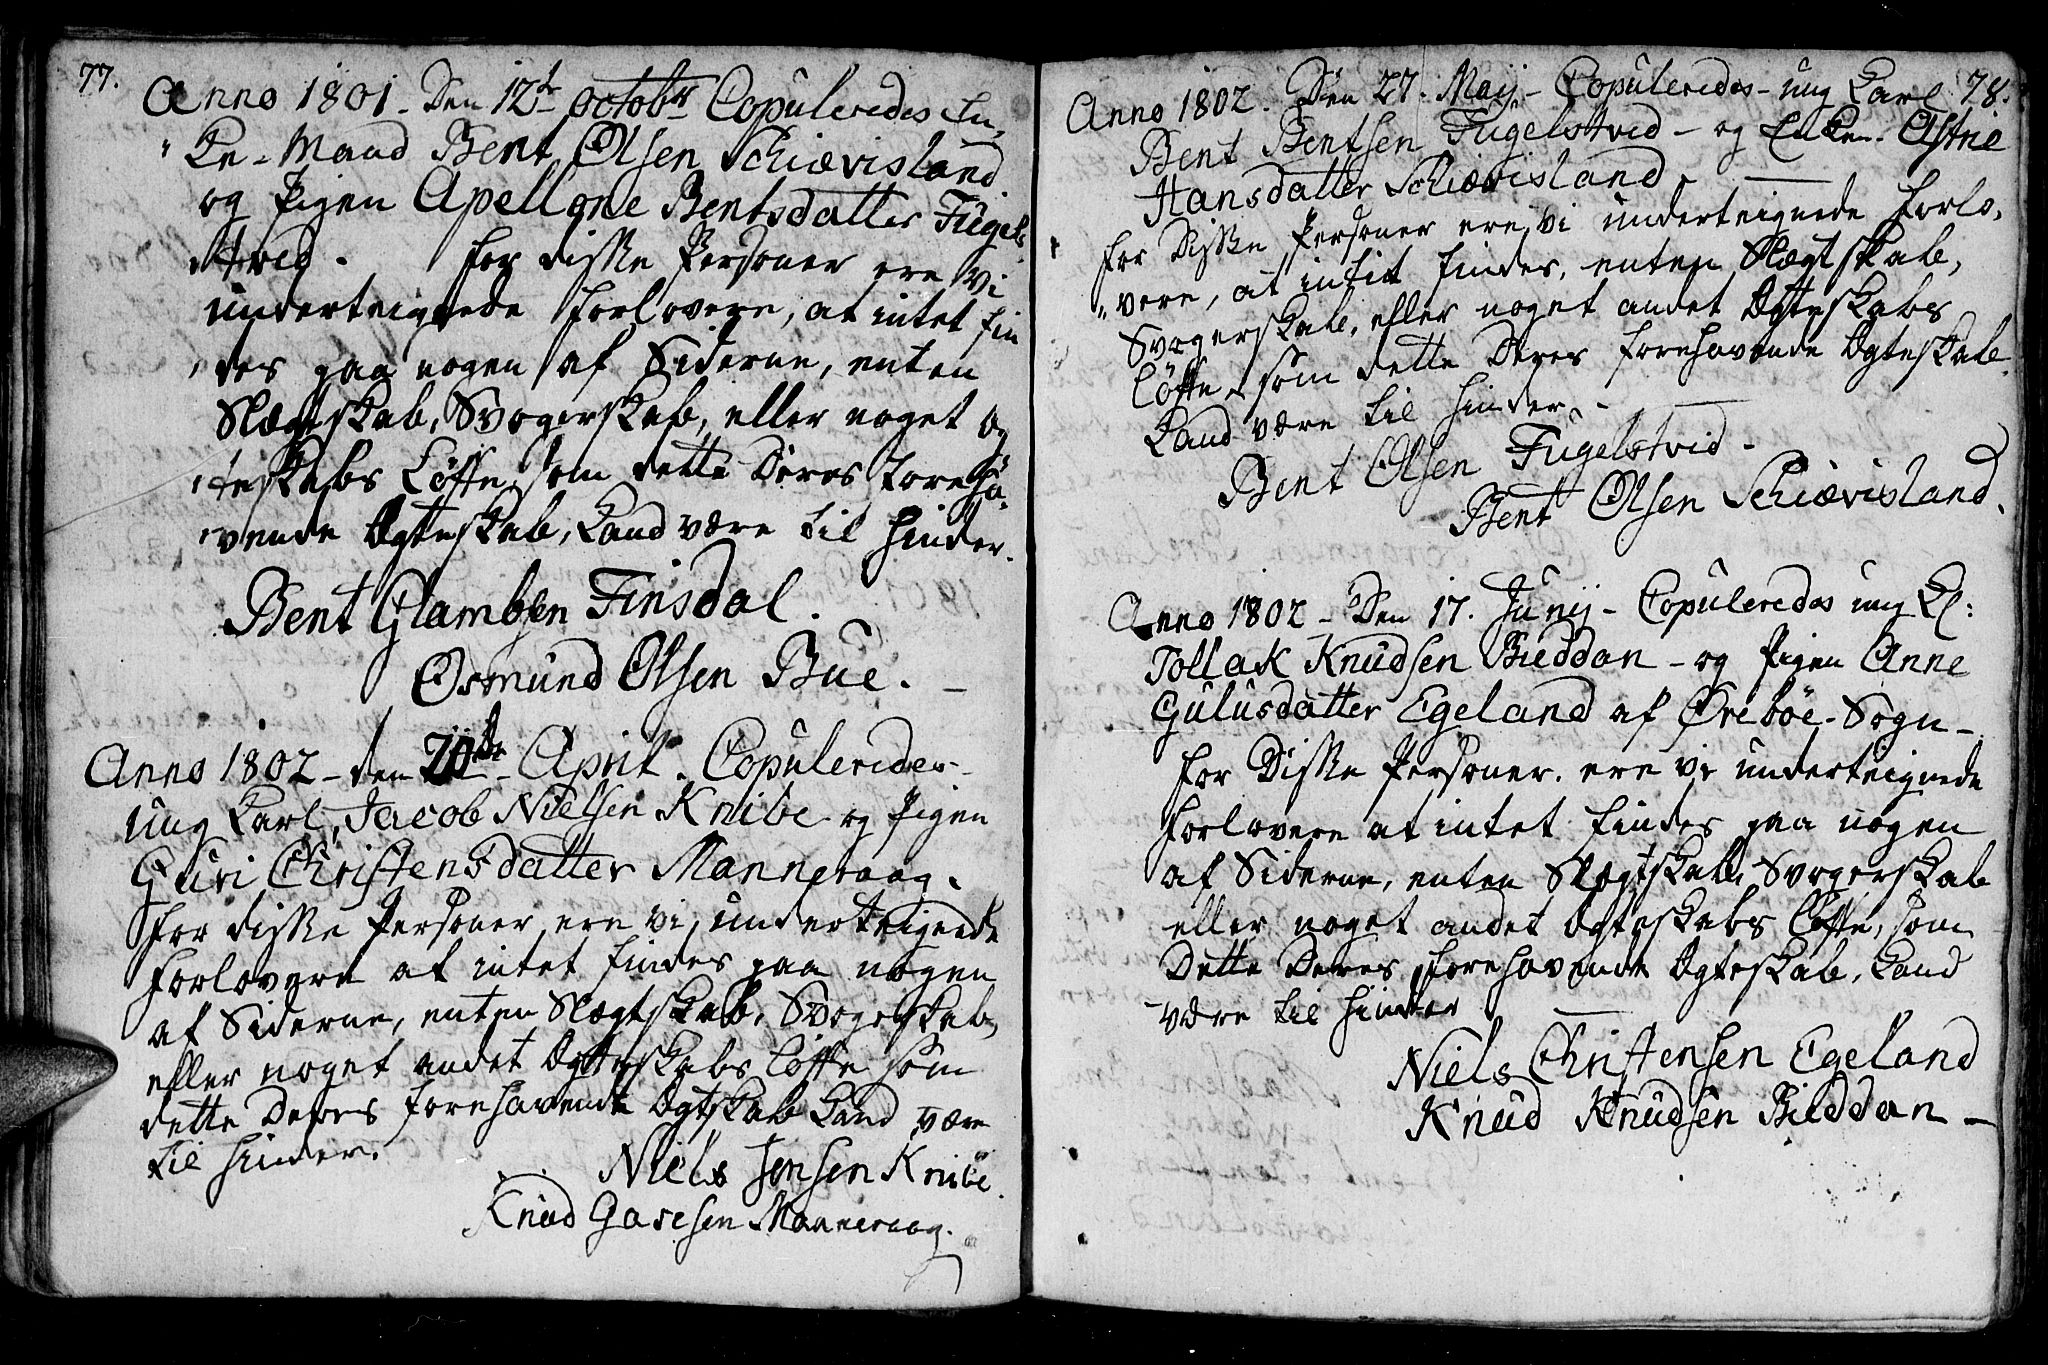 77.
Anno 1801 - Den 12te octobr Copuleredes En-
ke-Mand Bent Olsen Schiævisland
og Pigen Apellone Bentsdatter Fugel-
stved - for disse Personer ere Vi
underteignede forlovere, at intet fin
des paa nogen af Siderne, enten
Slægtskab, Svogerskab, eller noget Æg
teskabs Løffte, som dette Deres foreha-
vende Ægteskab, kand være til hinder.
Bent Glambsen Finsdal.
Osmund Olsen Bue. -
Anno 1802 - den April. Copuleredes -
ung Karl, Jacob Nielsen Knibe og Pigen
Guri Christensdatter Manneraag.
for disse Personer ere vi underteignede
forlovere at intet findes paa nogen
af Siderne, enten Slægtskab, Svogerskab,
eller noget andet Ægteskabs Løffte som
dette Deres forehavende Ægtskab kand være
til hinder.
Niels Jensen Knibe.
Knud Manneraag.
78.
Anno 1802. Den 27. Maij - Copuleredes - ung Karl
Bent Bentsen Fugelstved - og Enken Astrie
Hansdatter Schiævisland -
for Disse Personer ere vi underteignede forlo-
vere, at intit findes, enten Slægtskab,
Svogerskab, eller noget andet Ægteskabs
Løffte, som dette Deres forehavende Ægteskab
kand være til hinder. -
Bent Olsen Fugelstved -
Bent Olsen Schiævisland.
Anno 1802 - Den 17. Junij - Copuleredes ung Kl:
Tollak Knudsen Buddan - og Pigen Anne
Gulusdatter Egeland afØrebøe - Sogn -
for Disse Personer. ere vi underteignede
forlovere at intet findes paa nogen
af Siderne, enten Slægtskab, Svogerskab
eller noget andet Ægteskabs Løffte, som
Dette Deres forehavende Ægteskab, kand
være til hinder
Niels Christensen Egeland
Knud Knudsen Buddan -